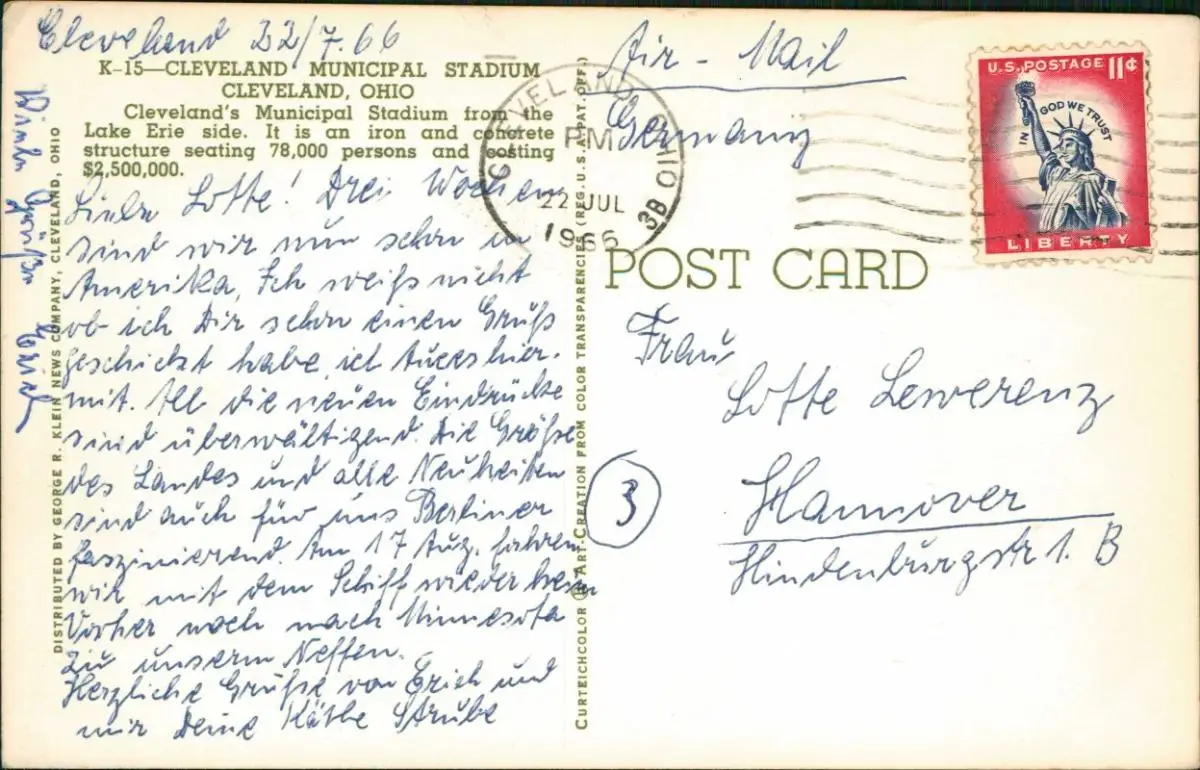 Cleveland 22/7.66
K-15—CLEVELAND MUNICIPAL STADIUM
CLEVELAND, OHIO
Cleveland's Municipal Stadium from the
Lake Erie side. It is an iron and concrete
structure seating 78,000 persons and costing
$2,500,000.
Liebe Lotte! Drei Wochen
sind wir nun schon in
Amerika, Ich weiß nicht
ob ich Dir schon einen Gruß
geschickt habe, ich tu es hier-
mit. All die neuen Eindrücke
sind überwältigend. Die Größe
des Landes und alle Neuheiten
sind auch für uns Berliner
faszinierend. Am 17 Aug. fahren
wir mit dem Schiff wieder heim
Vorher noch nach Minnesota
zu unserm Neffen.
Herzliche Grüße von Erich und
mir Deine Käthe Strube
Grüße Erich
DISTRIBUTED BY GEORGE R. KLEIN NEWS COMPANY, CLEVELAND, OHIO
CURTEICHCOLOR ® ART-CREATION FROM COLOR TRANSPARENCIES (REG. U.S.A. PAT. OFF.)
Air-Mail
Germany
CLEVELAND, OHIO 3B
PM
22 JUL
1966
U.S. POSTAGE 11¢
IN GOD WE TRUST
LIBERTY
POST CARD
Frau
Lotte Lewerenz
3
Hannover
Hindenburgstr 1. B